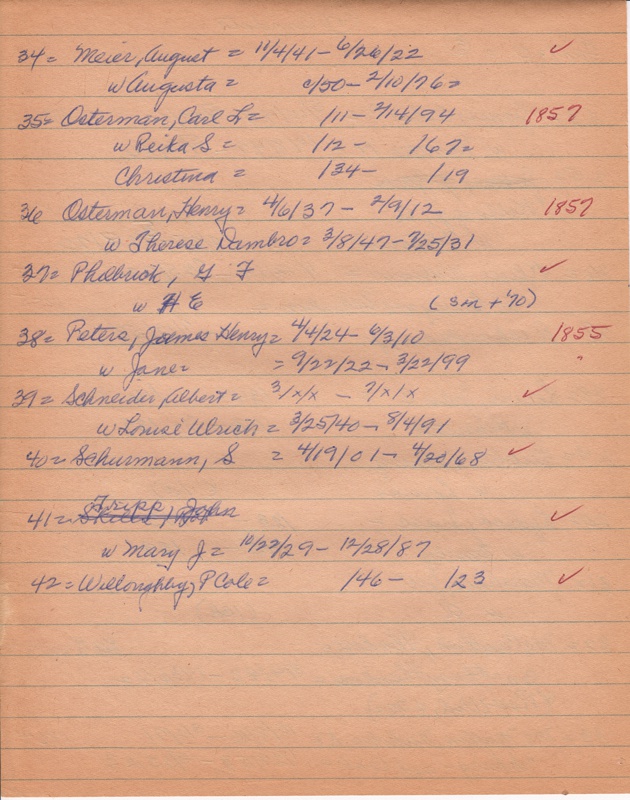 34= Meier, August = 11/4/41 - 6/26/22 ✓
w Augusta = c/50 - 2/10/76=
35= Osterman, Carl L= /11 - 2/14/94 1857
w Reika S = /12 - /67=
Christina = /34 - /19
36 Osterman, Henry= 4/6/37 - 2/9/12 1857
w Therese Dambro= 3/8/47 - 7/25/31
37= Philbrick, G F ✓
w H E (3m + '70)
38= Peters, James Henry= 4/4/24 - 6/3/10 1855
w Jane= = 9/22/22 - 3/22/99 "
39= Schneider, Albert= 3/x/x - 7/x/x ✓
w Louise Ulrich = 3/25/40 - 8/4/91
40= Schurmann, S = 4/19/01 - 4/20/68 ✓
Tripp, John
41= ✓
w Mary J= 10/22/29 - 12/28/87
42= Willoughby, P Cole= /46 - /23 ✓